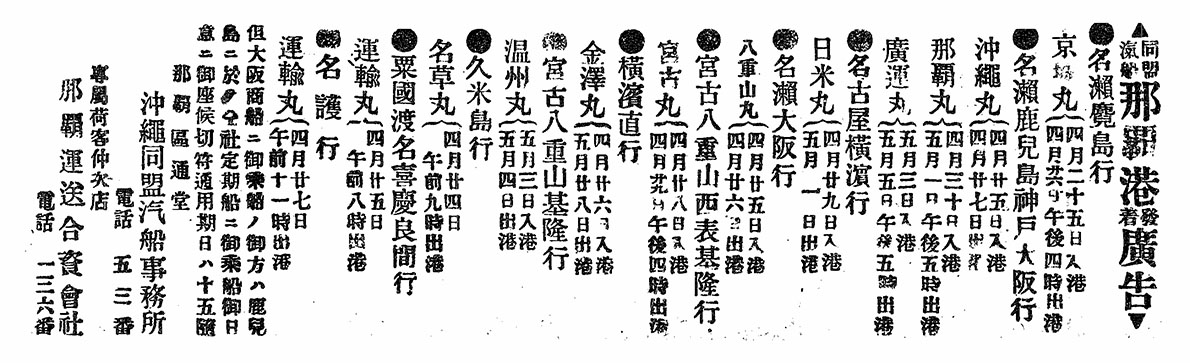 ▲同盟汽船那覇港發着廣告▼
●名瀬覺島行
京城丸
四月二十五日入港
四月廿六日午後四時出港
●名瀬鹿兒島神戸大阪行
沖繩丸
四月廿五日入港
四月廿七日出港
那覇丸
四月三十日入港
五月一日午後五時出港
廣運丸
五月三日入港
五月五日午後五時出港
●名古屋横濱行
日米丸
四月廿九日入港
五月一日出港
●名瀬大阪行
八重山丸
四月廿五日入港
四月廿六日出港
●宮古八重山西表基隆行
宮古丸
四月廿八日入港
四月廿九日午後四時出港
●横濱直行
金澤丸
四月廿六日入港
五月廿八日出港
●宮古八重山基隆行
温州丸
五月三日入港
五月四日出港
●久米島行
名草丸
四月廿四日
午前九時出港
●粟國渡名喜慶良間行
運輸丸
四月廿五日
午前八時出港
●名護行
運輸丸
四月廿七日
午前十一時出港
但大阪商船ニ御乘船ノ御方ハ鹿兒
島ニ於テ仝社定期船ニ御乘船御日
意ニ御座候切符通用期日ハ十五隨
那覇區通堂
沖繩同盟汽船事務所
電話 五三番
專屬荷客仲次店
那覇運送合資會社
電話 一三六番